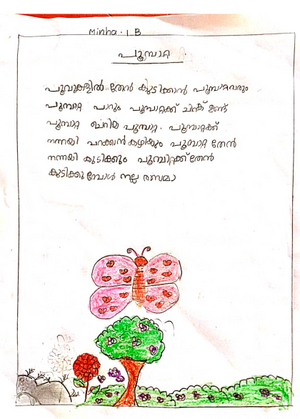 Minha - I.B
പൂമ്പാറ്റ
പൂവുകളിൽ തേൻ കുടിക്കാൻ പൂമ്പാറ്റവരും
പൂമ്പാറ്റ പാറും പൂമ്പാറ്റക്ക് ചിറക് ഉണ്ട്
പൂമ്പാറ്റ ചെറിയ പൂമ്പാറ്റ. പൂമ്പാറ്റക്ക്
നന്നായി പറക്കാൻ കഴിയും പൂമ്പാറ്റ തേൻ
നന്നായി കുടിക്കും പൂമ്പാറ്റക്ക് തേൻ
കുടിക്കുമ്പോൾ നല്ല രസമാ